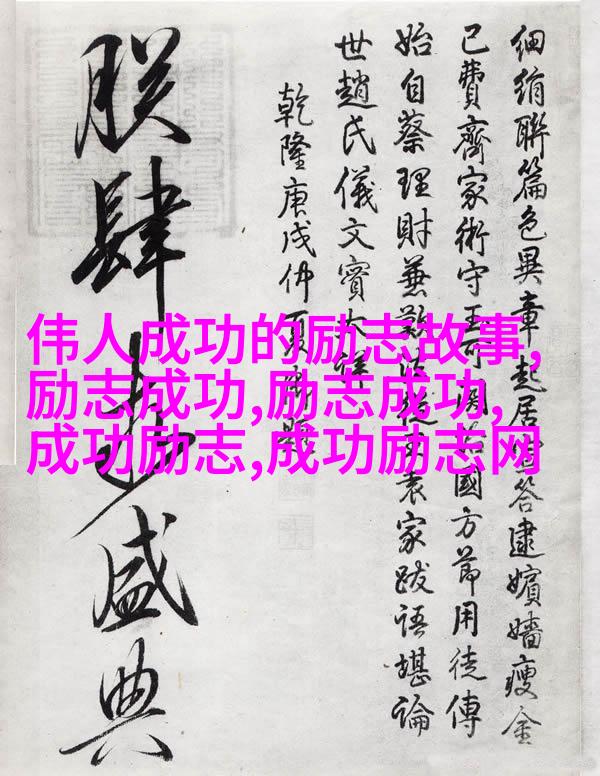 細絹聯篇色異章起居答逮嬪嬙瘦金
已費齊家術守王可國方節用徒傳
始自蔡理財兼袁家跋語堪論
世趙氏儀文實大
乾隆庚戌仲夏
朕肆盛典
伟人成功的励志故事,
励志成功,励志成功,
成功励志,成功励志网